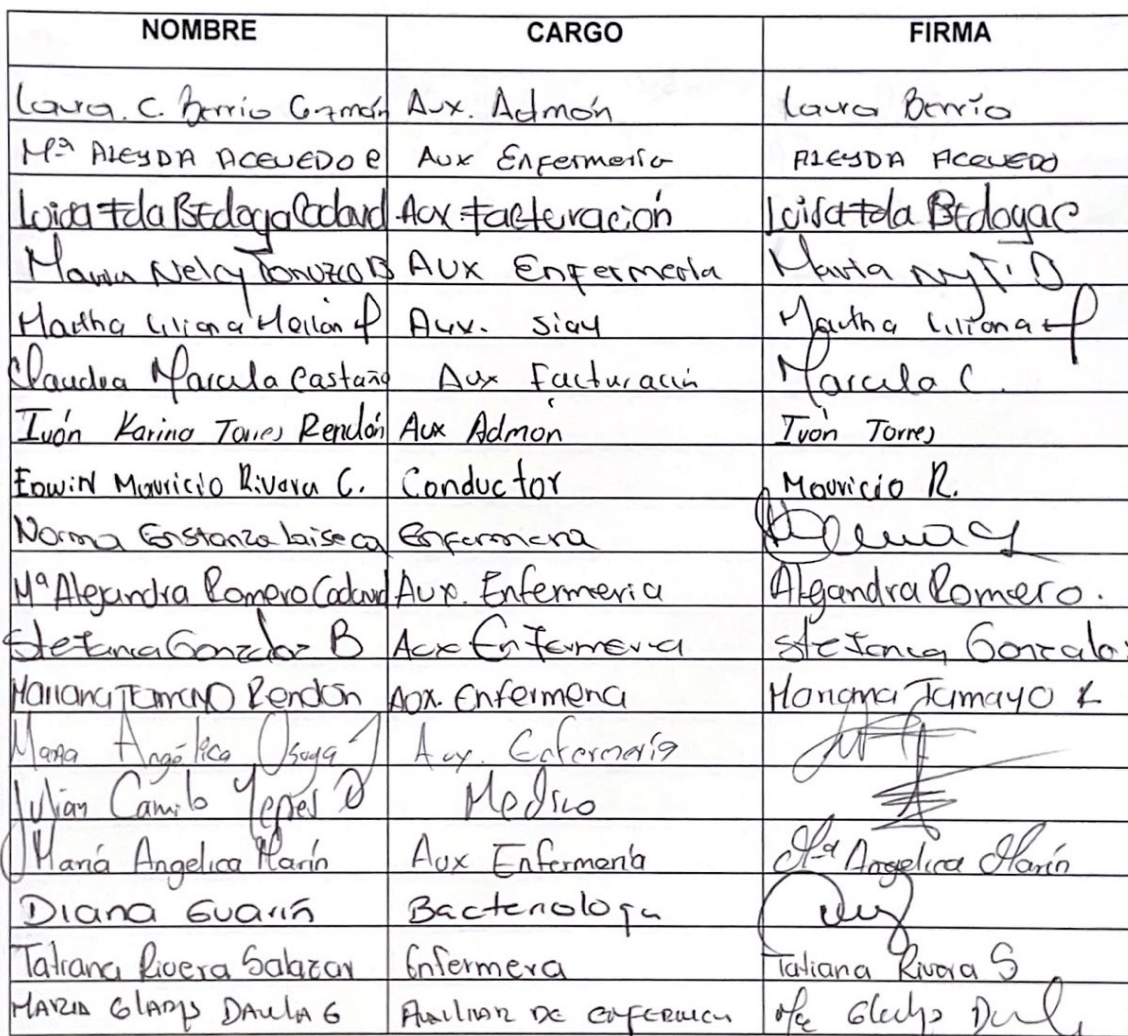 NOMBRE CARGO FIRMA
Laura. C. Berrio Gzmán Aux. Admón Laura Berrio
Mª ALEYDA ACEVEDO P Aux Enfermeria ALEYDA ACEVEDO
Luisa Fda Bedoya Cadavid Aux facturación Luisa Fda Bedoya C
Maria Nelcy B Aux Enfermeria Maria
Martha Liliana Aux. Siau Martha Liliana
Claudia Marcela Castaño Aux Facturación Marcela C.
Ivón Karina Torres Rendón Aux Admón Ivón Torres
Edwin Mauricio Rivera C. Conductor Mauricio R.
Norma Constanza Laiseca Enfermera
Mª Alejandra Romero Cadavid Aux. Enfermeria Alejandra Romero.
Stefania Gonzalez B Aux Enfermeria Stefania Gonzalez
Mariana Tamayo Rendón Aux. Enfermeria Mariana Tamayo R
Maria Angélica Usuga J Aux. Enfermería
Julian Camilo Yepes Medico
Maria Angelica Marín Aux Enfermeria Mª Angelica Marín
Diana Guarín Bacteriologa
Tatiana Rivera Salazar Enfermera Tatiana Rivera S
MARIA GLADYS DAVILA G AUXILIAR DE ENFERMERIA Gladys